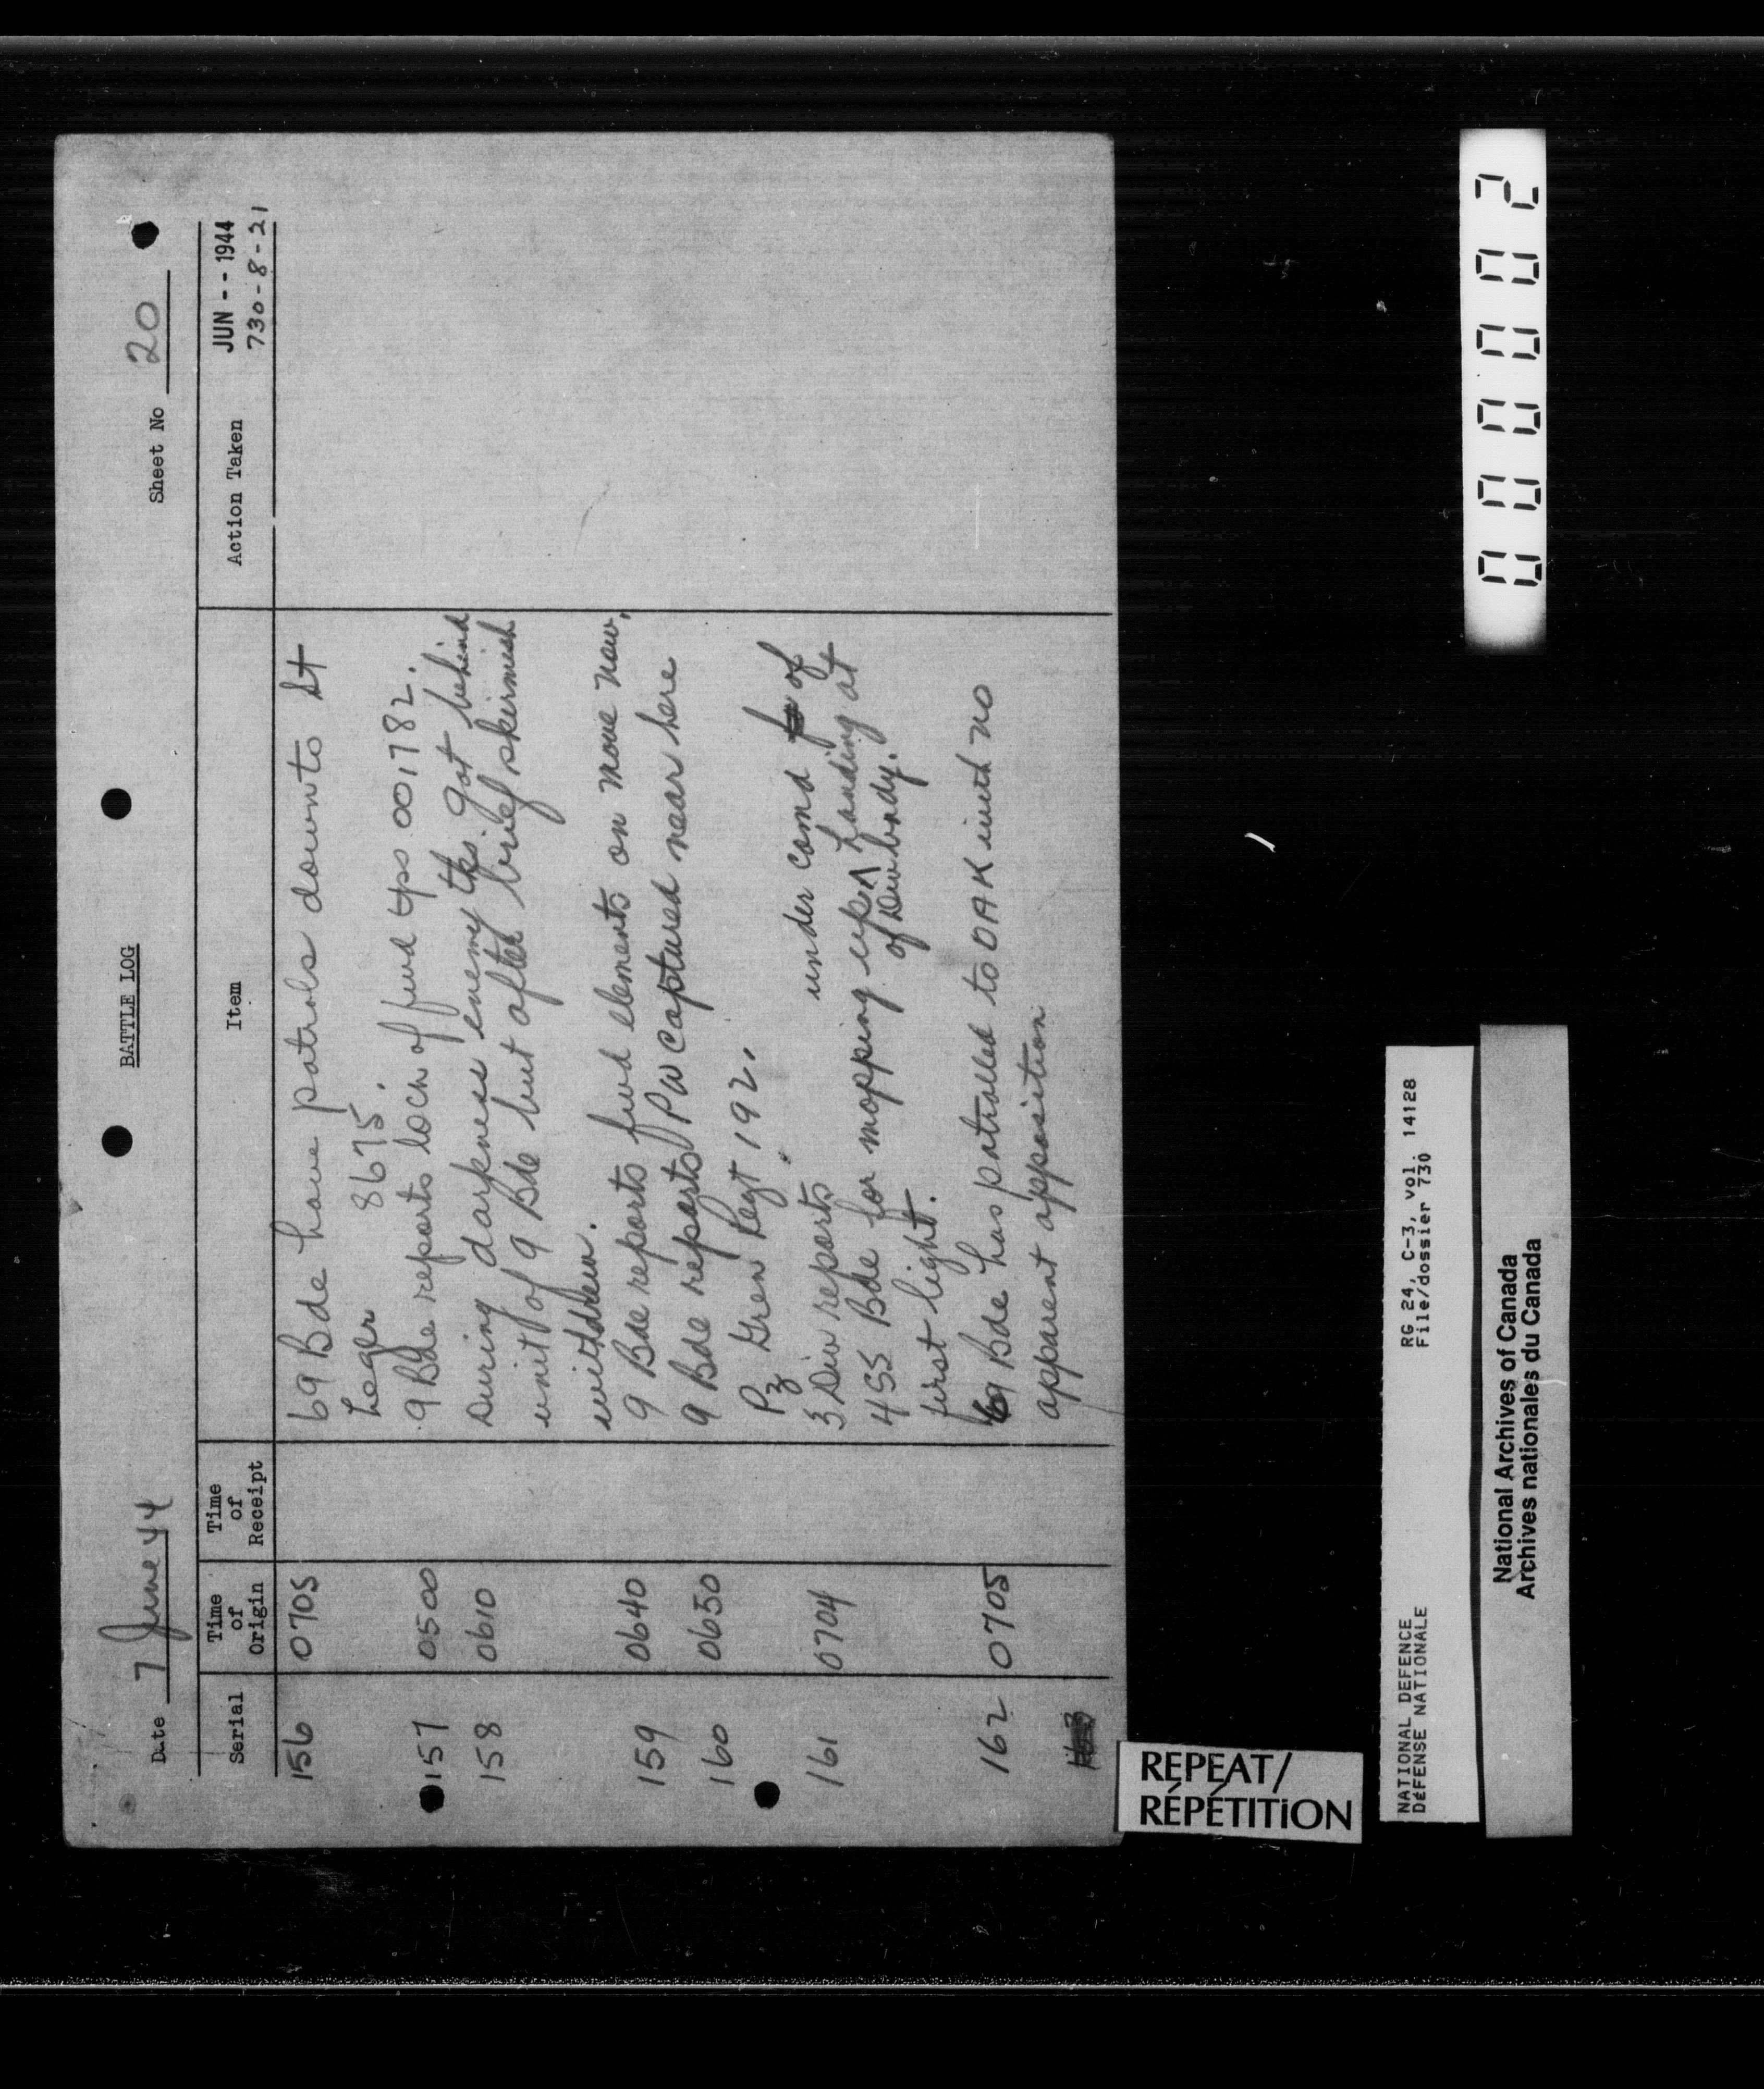 Date 7 June 44
BATTLE LOG
Sheet No 20
Serial Time of Origin Time of Receipt Item Action Taken
JUN - - 1944
730-8-21
156 0705 69 Bde have patrols down to St
Leger 8675.
157 0500 9 Bde reports locn of fwd tps 001782.
158 0610 During darkness enemy tks got behind
unit of 9 Bde but after brief skirmish
withdrew.
159 0640 9 Bde reports fwd elements on move now.
160 0650 9 Bde reports PW captured near here
Pz Gren Regt 192.
161 0704 3 Div reports under comd of
4 SS Bde for mopping up ^ Landing at
of Div bndy.
first light.
162 0705 69 Bde has patrolled to OAK with no
apparent opposition
163
REPEAT/
RÉPÉTITION
NATIONAL DEFENCE RG 24, C-3, vol. 14128
DÉFENSE NATIONALE File/dossier 730
National Archives of Canada
Archives nationales du Canada
000002